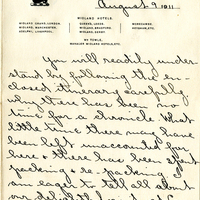 August 9, 1911
MIDLAND HOTELS.
MIDLAND GRAND, LONDON.
MIDLAND, MANCHESTER.
ADELPHI, LIVERPOOL.
QUEENS, LEEDS.
MIDLAND, BRADFORD.
MIDLAND, DERBY.
MORECAMBE.
HEYSHAM, ETC.
W. TOWLE,
MANAGER MIDLAND HOTELS, ETC.
You will readily under
stand by following the en-
closed itinerary carefully
why there has been no
time for a chronicle. What
little time there may have
been left unaccounted for
here & there has been spent
packing & re-packing. I
am eager to tell all about
our delightful